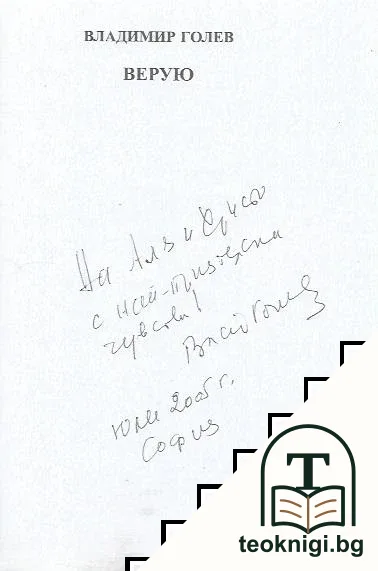 ВЛАДИМИР ГОЛЕВ
ВЕРУЮ
На Аля и Христо
с най-приятелски
чувства!
Влад Голев
Юли 2005 г.
София
T
teoknigi.bg